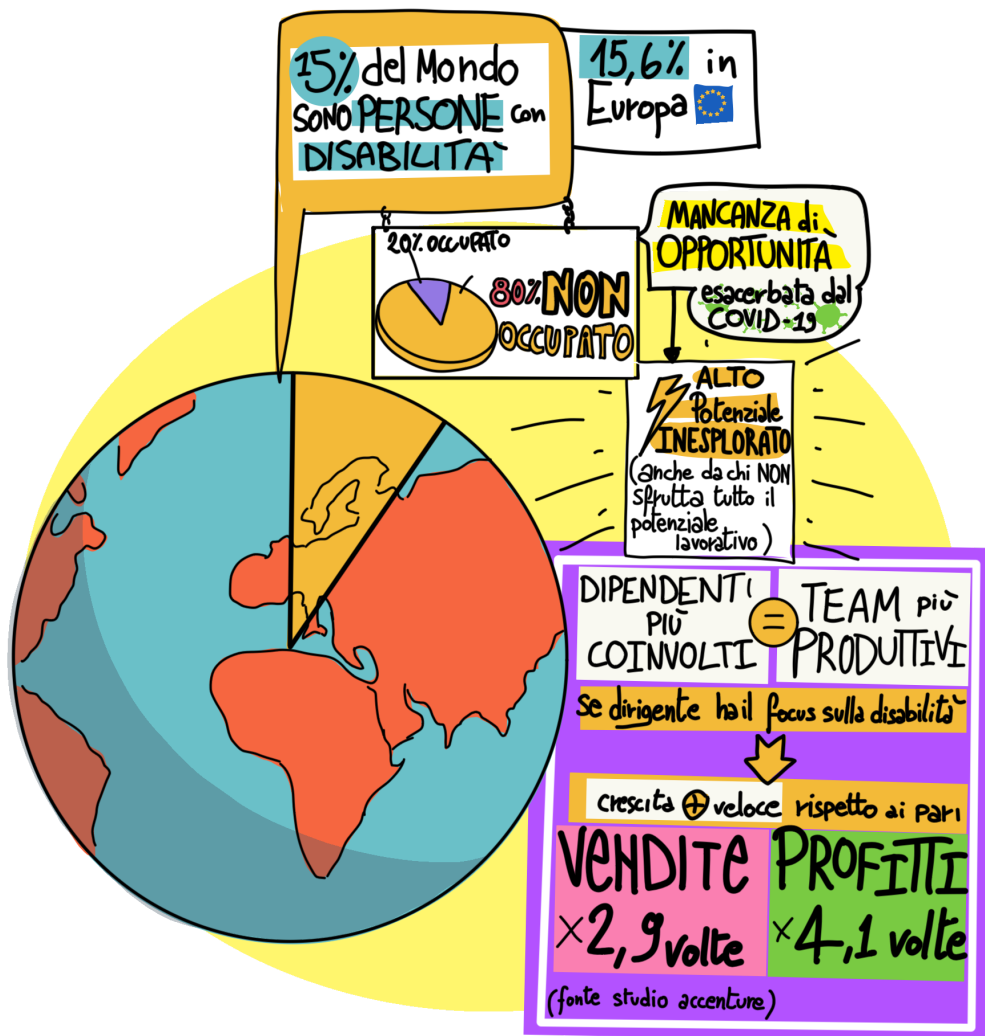 15% del Mondo
SONO PERSONE con
DISABILITÀ
15,6% in
Europa
20% OCCUPATO
80% NON
OCCUPATO
MANCANZA di
OPPORTUNITÀ
esacerbata dal
COVID-19
ALTO
Potenziale
INESPLORATO
(anche da chi NON
sfrutta tutto il
potenziale
lavorativo)
DIPENDENTI
PIÙ
COINVOLTI
=
TEAM più
PRODUTTIVI
Se dirigente ha il focus sulla disabilità
crescita + veloce rispetto ai pari
VENDITE
×2,9 volte
PROFITTI
×4,1 volte
(fonte studio accenture)